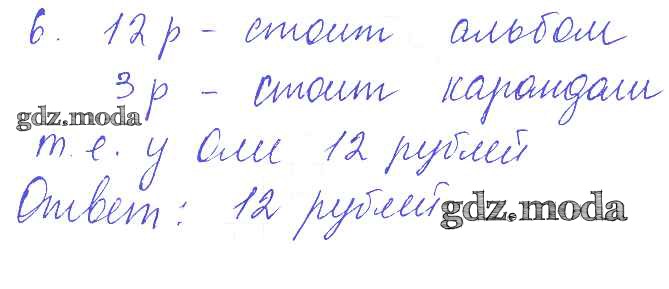 6. 12р - стоит альбом
3р - стоит карандаш
gdz.moda
т.е. у Оли 12 рублей
Ответ: 12 рублей
gdz.moda